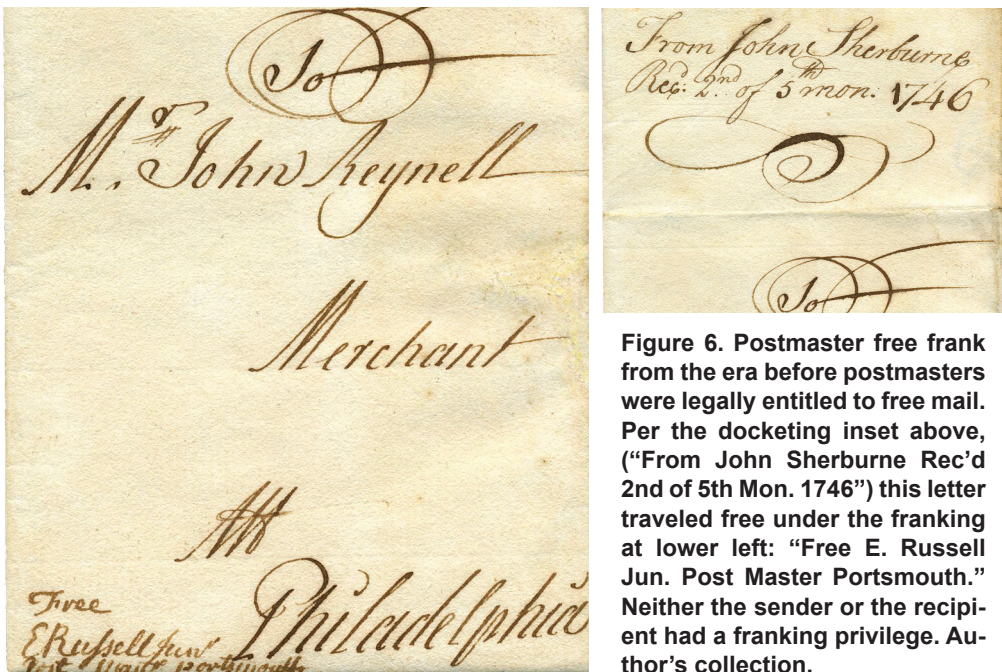 To
Mr. John Reynell
Merchant
Att
Philadelphia
Free
E Russell Junr
Post Mastr portsmouth
From John Sherburne
Rec'd: 2nd of 5th mon: 1746
To
Figure 6. Postmaster free frank
from the era before postmasters
were legally entitled to free mail.
Per the docketing inset above,
(“From John Sherburne Rec’d
2nd of 5th Mon. 1746”) this letter
traveled free under the franking
at lower left: “Free E. Russell
Jun. Post Master Portsmouth.”
Neither the sender or the recipi-
ent had a franking privilege. Au-
thor’s collection.